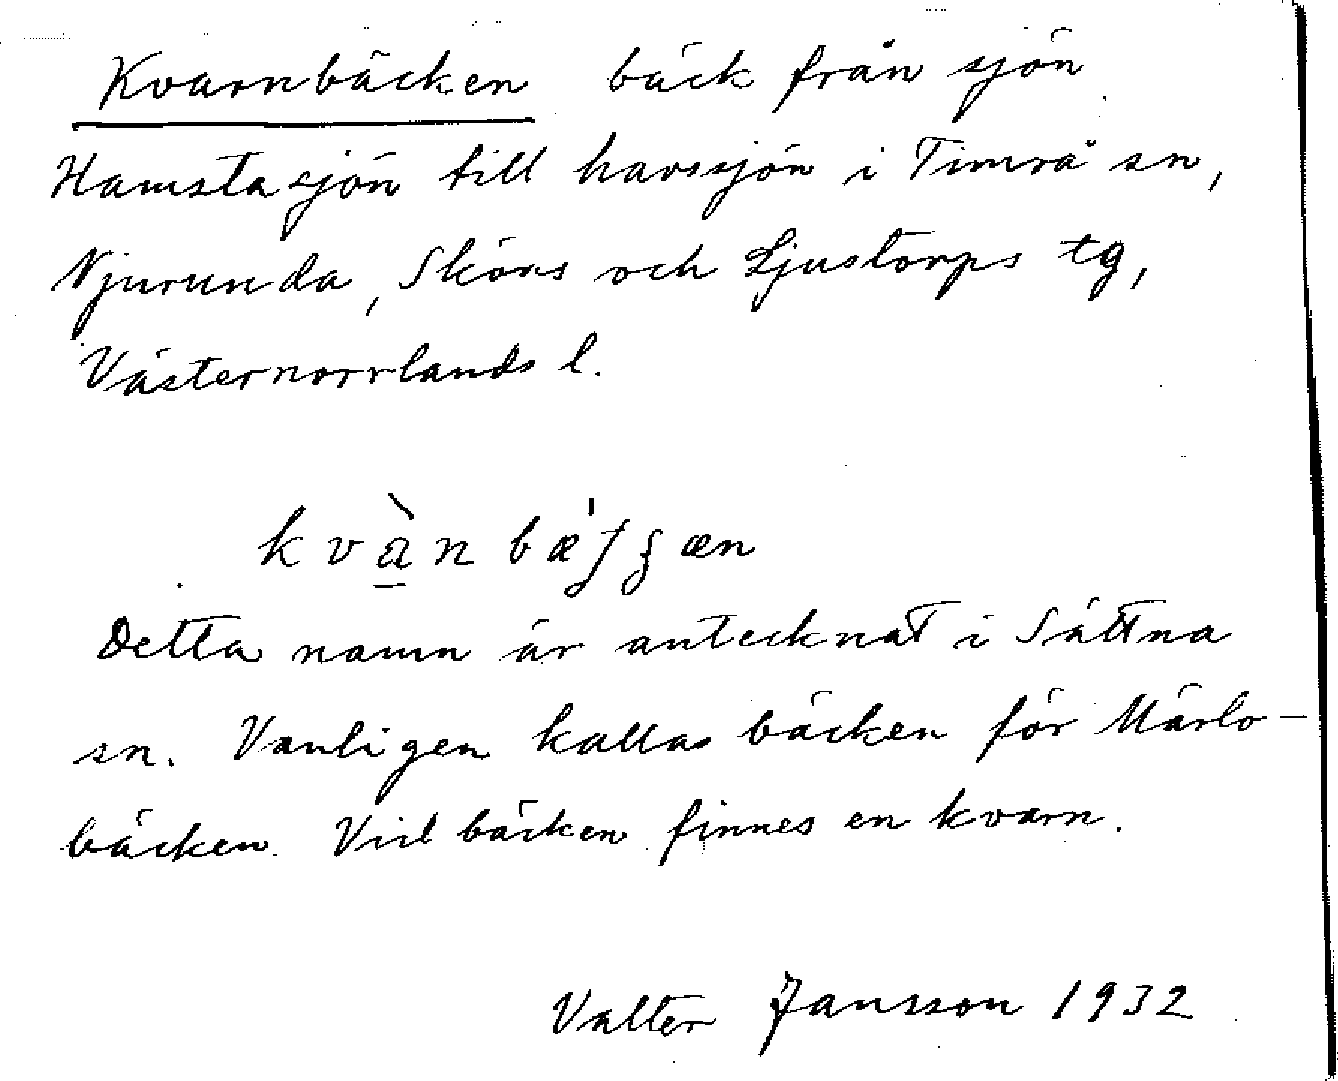 Kvarnbäcken bäck från sjön
Hamstasjön till havssjön i Timrå sn,
Njurunda, Sköns och Ljustorps tg,
Västernorrlands l.
kvàn bæ'ʃʃæn
Detta namn är antecknat i Sättna
sn. Vanligen kallas bäcken för Märlo-
bäcken. Vid bäcken finnes en kvarn.
Valter Jansson 1932